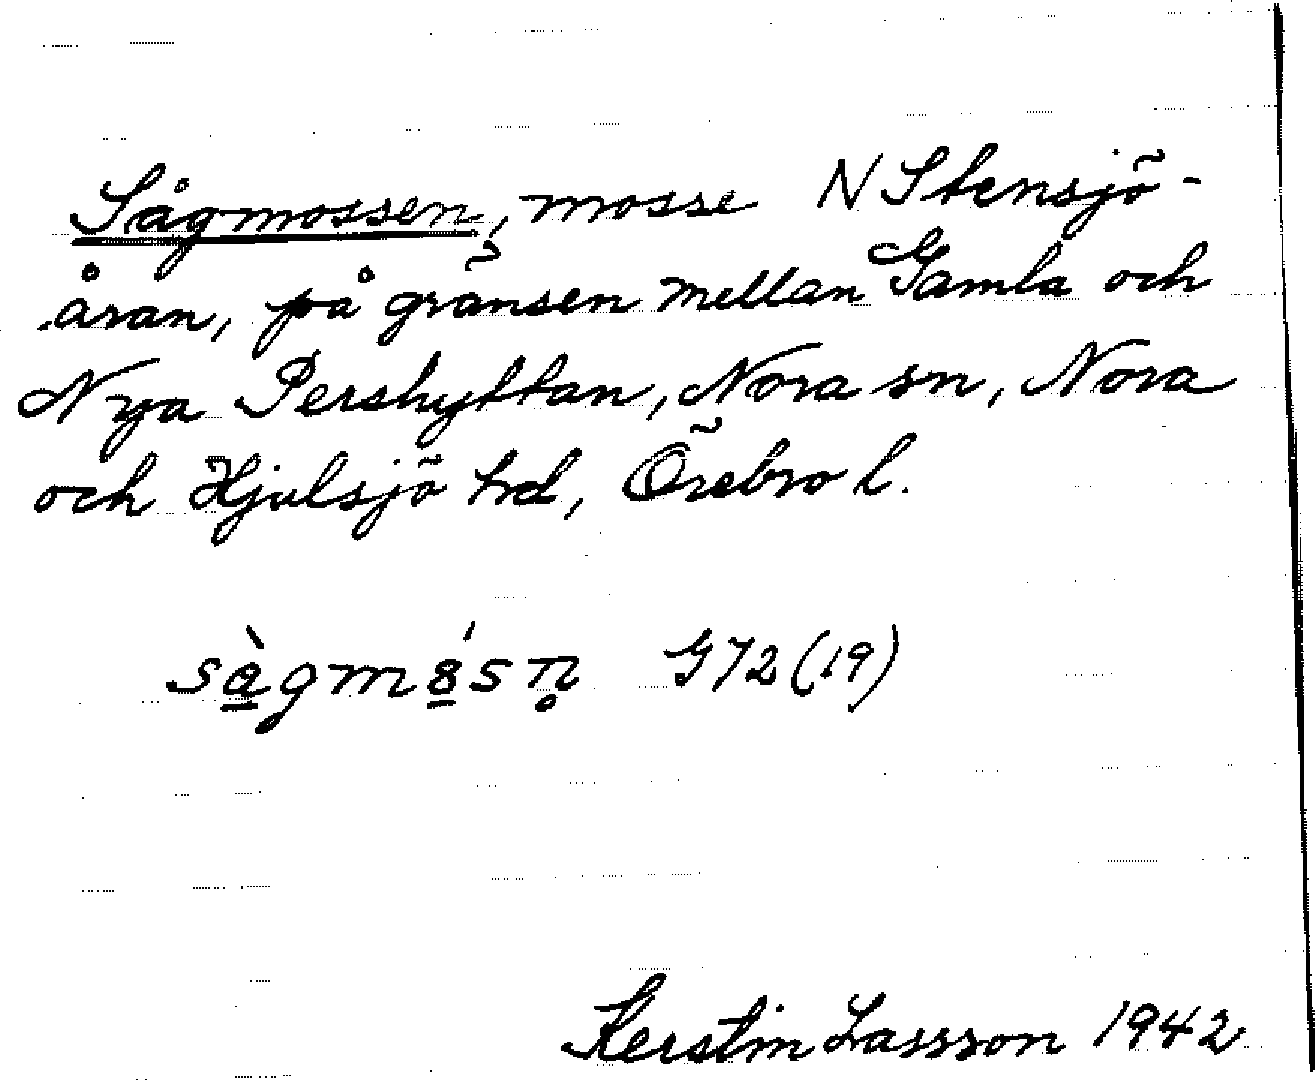 Sågmossen, mosse N Stensjö-
åran, på gränsen mellan Gamla och
Nya Pershyttan, Nora sn, Nora
och Hjulsjö hd, Örebro l.
G72(19)
Kerstin Lassson 1942